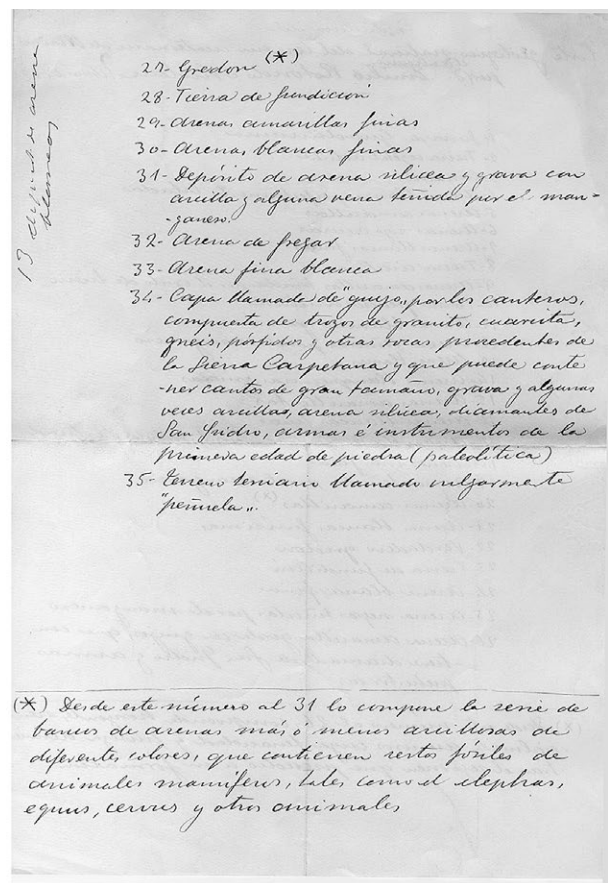 13 depósito de arena
blancas
27- Gredon (*)
28- Tierra de fundición
29- Arenas amarillas finas
30- Arenas blancas finas
31- Depósito de arena silicea y grava con
arcilla y alguna vena teñida por el man-
-ganeso.
32- Arena de fregar
33- Arena fina blanca
34- Capa llamada de "guijo, por los canteros,
compuesta de trozos de granito, cuarcita,
gneis, pórfidos y otras rocas procedentes de
la Sierra Carpetana y que puede conte
-ner cantos de gran tamaño, grava y algunas
veces arcillas, arena silicea, diamantes de
San Isidro, armas é instrumentos de la
primera edad de piedra (paleolítica)
35- Terreno terciario llamado vulgarmente
"peñuela".
(*) Desde este número al 31 lo compone la serie de
bancos de arenas más ó menos arcillosas de
diferentes colores, que contienen restos fósiles de
animales mamíferos, tales como el elephas,
equus, cervus y otros animales